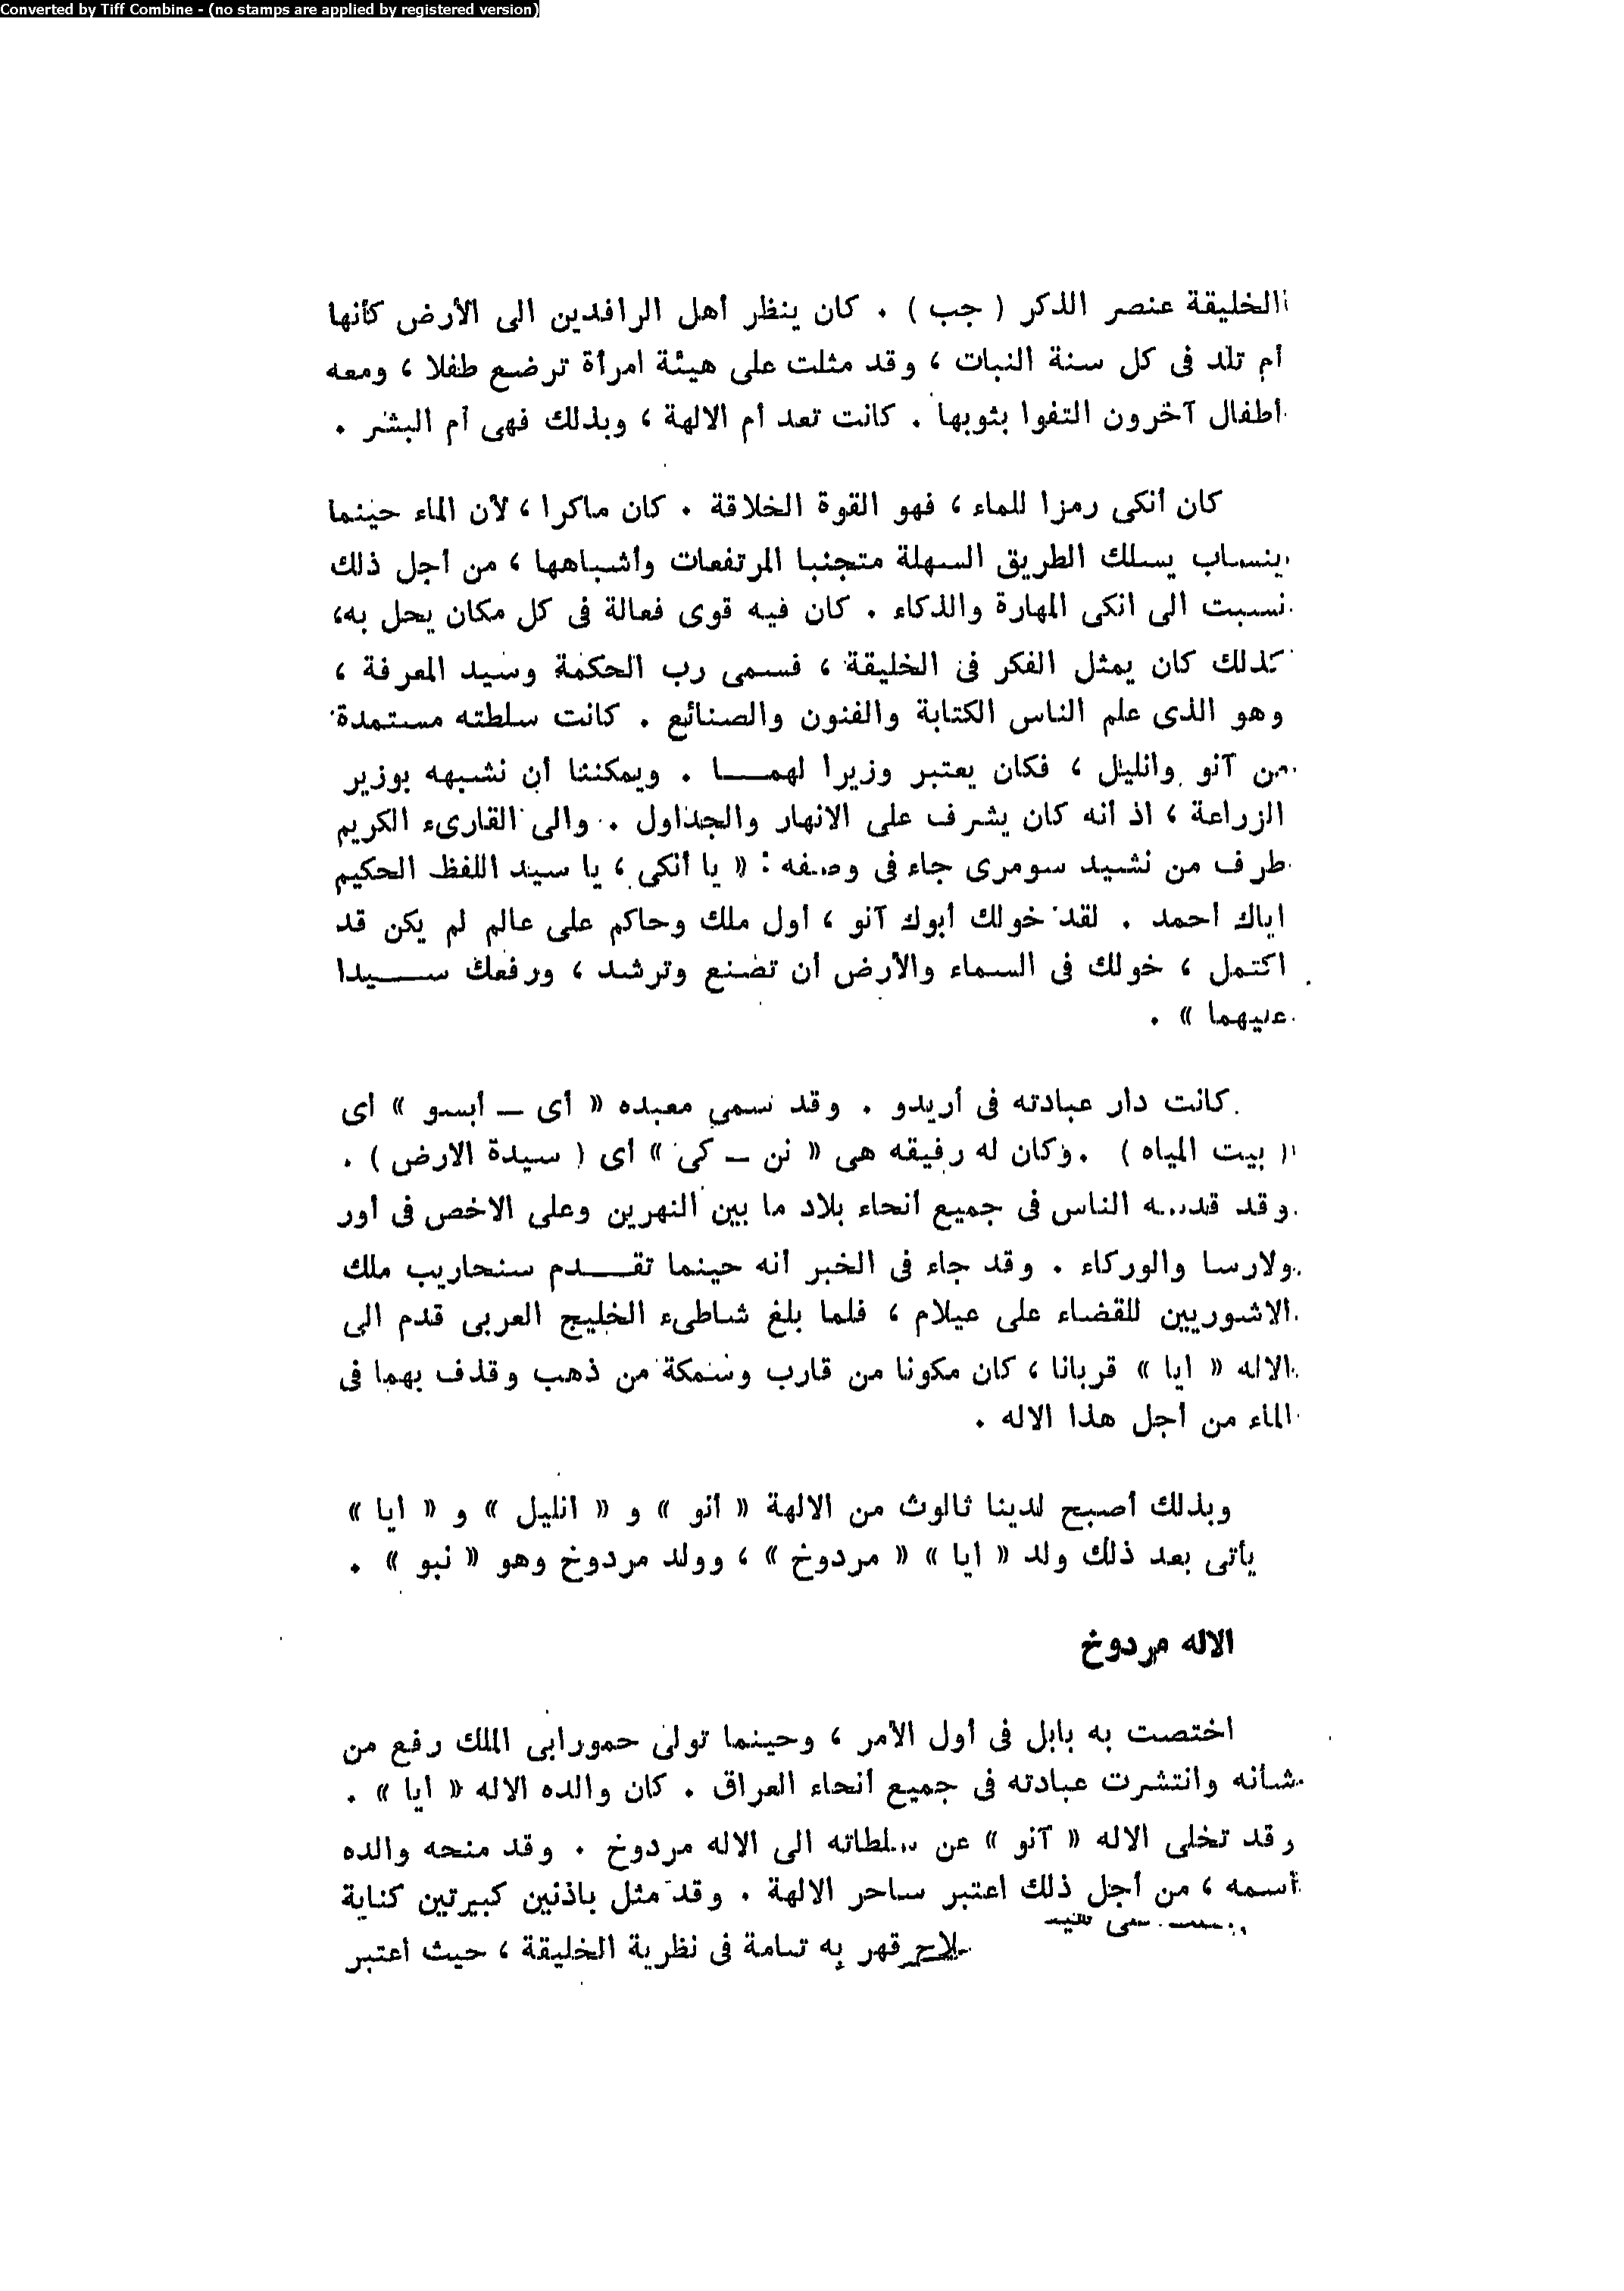 Converted by Tiff Combine - (no stamps are applied by registered version)
الخليقة عنصر الذكر ( جب ) . كان ينظر أهل الرافدين الى الأرض كأنها
أم تلد فى كل سنة النبات ، وقد مثلت على هيئة امرأة ترضع طفلا ، ومعه
أطفال آخرون التفوا بثوبها . كانت تعد أم الالهة ، وبذلك فهى أم البشر .
كان أنكى رمزا للماء ، فهو القوة الخلاقة . كان ماكرا ، لأن الماء حينما
ينساب يسلك الطريق السهلة متجنبا المرتفعات وأشباهها ، من أجل ذلك
نسبت الى انكى المهارة والذكاء . كان فيه قوى فعالة فى كل مكان يحل به،
كذلك كان يمثل الفكر فى الخليقة ، فسمى رب الحكمة وسيد المعرفة ،
وهو الذى علم الناس الكتابة والفنون والصنائع . كانت سلطته مستمدة
من آنو وانليل ، فكان يعتبر وزيرا لهمـــا . ويمكننا أن نشبهه بوزير
الزراعة ، اذ أنه كان يشرف على الانهار والجداول . والى القارىء الكريم
طرف من نشيد سومرى جاء فى وصفه : « يا أنكى ، يا سيد اللفظ الحكيم
اياك أحمد . لقد خولك أبوك آنو ، أول ملك وحاكم على عالم لم يكن قد
اكتمل ، خولك فى السماء والأرض أن تصنع وترشد ، ورفعك ســـيدا
عليهما » .
كانت دار عبادته فى أريدو . وقد سمى معبده « أى ــ أبسو » أى
( بيت المياه ) . وكان له رفيقه هى « نن ــ كى » أى ( سيدة الارض ) .
وقد قدسه الناس فى جميع أنحاء بلاد ما بين النهرين وعلى الاخص فى أور
ولارسا والوركاء . وقد جاء فى الخبر أنه حينما تقـــدم سنحاريب ملك
الاشوريين للقضاء على عيلام ، فلما بلغ شاطىء الخليج العربى قدم الى
الاله « ايا » قربانا ، كان مكونا من قارب وسمكة من ذهب وقذف بهما فى
الماء من أجل هذا الاله .
وبذلك أصبح لدينا ثالوث من الالهة « آنو » و « انليل » و « ايا »
يأتى بعد ذلك ولد « أيا » « مردوخ » ، وولد مردوخ وهو « نبو » .
الاله مردوخ
اختصت به بابل فى أول الأمر ، وحينما تولى حمورابى الملك رفع من
شأنه وانتشرت عبادته فى جميع أنحاء العراق . كان والده الاله « ايا » .
وقد تخلى الاله « آنو » عن سلطاته الى الاله مردوخ . وقد منحه والده
أسمه ، من أجل ذلك اعتبر ساحر الالهة . وقد مثل باذنين كبيرتين كناية
قهر به تيامة فى نظرية الخليقة ، حيث أعتبر